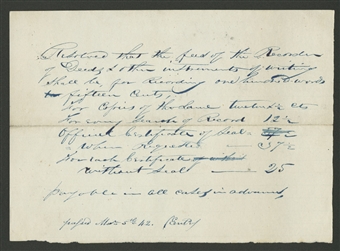 Resolved that the fees of the Recorder
of Deeds & other instruments of writing
Shall be, for Recording one hundred words
fifteen Cents,
For Copies of the Same twelve & cts
For every Search of Record 12½
Official Certificate of Seal
When requested — 37½
For each Certificate
without Seal — 25
payable in all cases in advance
passed Mar 5th 42.